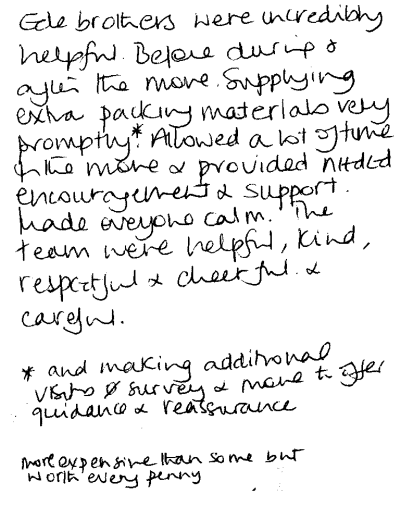 Ede brothers were incredibly
helpful. Before during &
after the move. Supplying
extra packing materials very
promptly*. Allowed a lot of time
for the move & provided needed
encouragement & support.
Made everyone calm. The
team were helpful, kind,
respectful & cheerful. &
careful.
* and making additional
visits survey & move to offer
guidance & reassurance
more expensive than some but
worth every penny